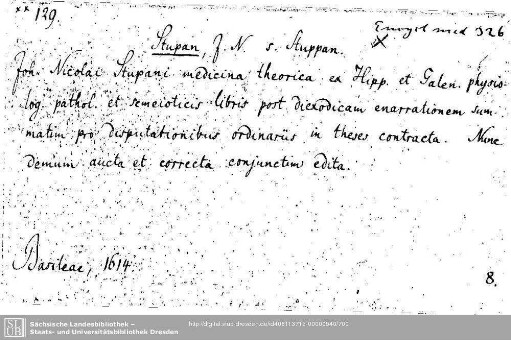 ** 129.
Encycl med 326
Stupan, J. N. s. Stuppan.
Joh. Nicolai Stupani medicina theorica ex Hipp. et Galen. physio-
log. pathol. et semeioticis libris post diexodicam enarrationem sum-
matim pro disputationibus ordinariis in theses contracta. Nunc
demum aucta et correcta conjunctim edita.
Basileae, 1614.
8.
Sächsische Landesbibliothek –
Staats- und Universitätsbibliothek Dresden